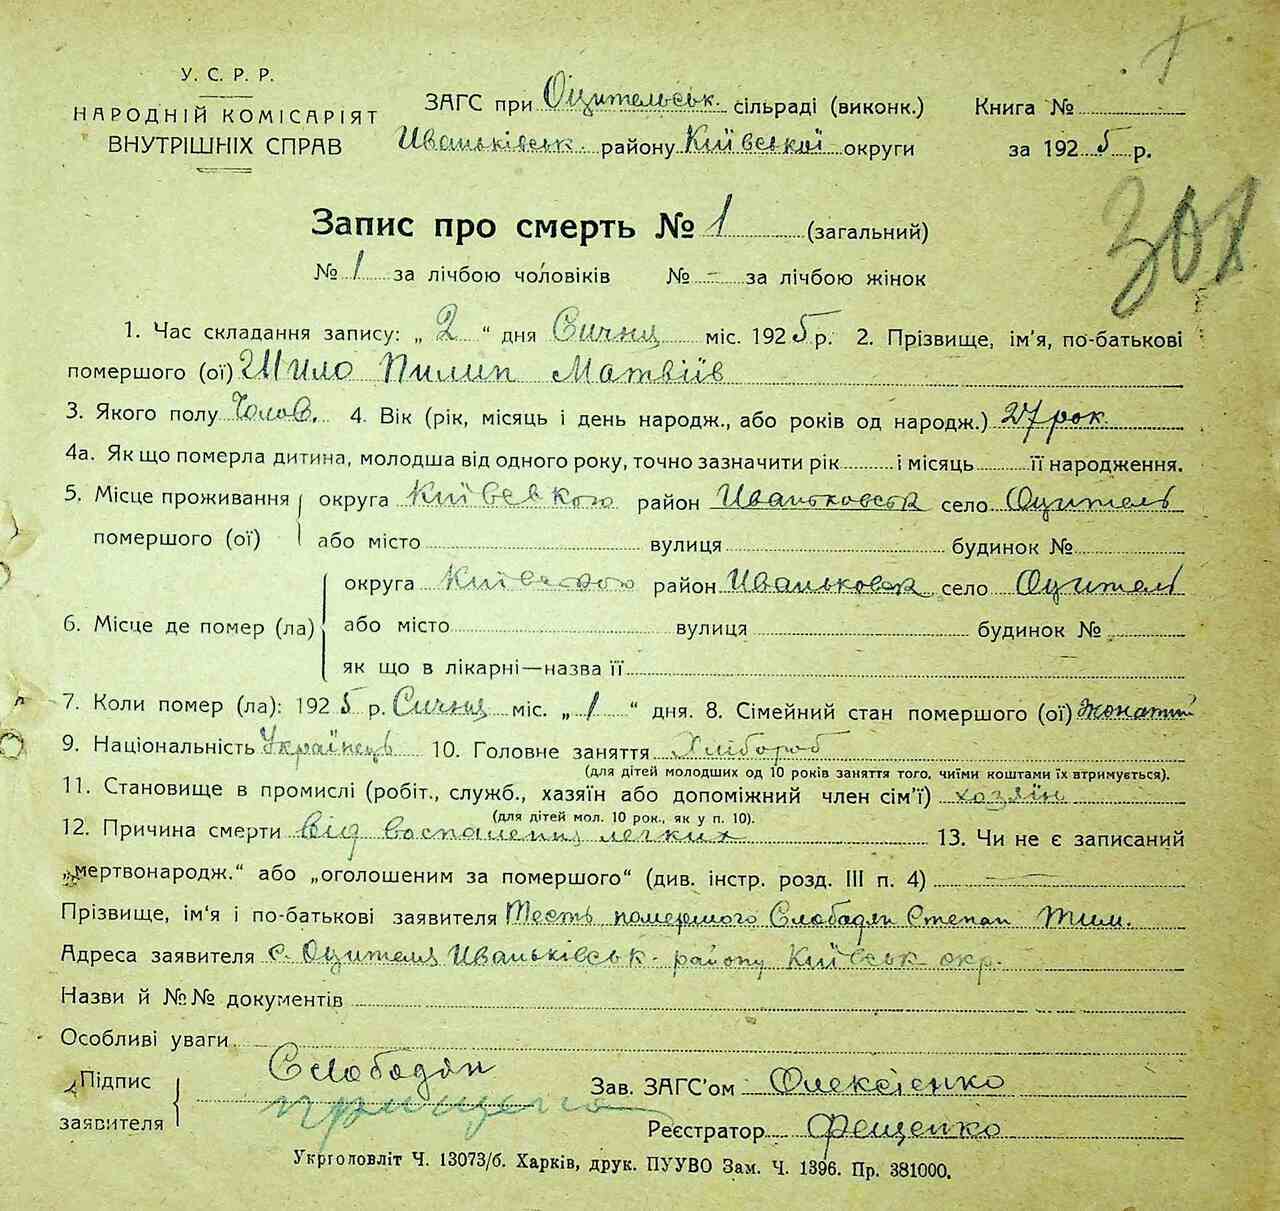 У. С. Р. Р.
НАРОДНІЙ КОМІСАРІЯТ
ВНУТРІШНІХ СПРАВ
ЗАГС при Оцительськ. сільраді (виконк.)
Иваньківськ. району Київської округи
Книга №
за 1925 р.
301
Запис про смерть № 1 (загальний)
№ 1 за лічбою чоловіків № - за лічбою жінок
1. Час складання запису: „ 2 “ дня Сичня міс. 1925 р. 2. Прізвище, ім'я, по-батькові
помершого (ої) Шило Пилип Матвіїв
3. Якого полу Чолов. 4. Вік (рік, місяць і день народж., або років од народж.) 27 рок.
4а. Як що померла дитина, молодша від одного року, точно зазначити рік і місяць її народження.
5. Місце проживання помершого (ої)
округа Київською район Иваньковськ село Оцитель
або місто вулиця будинок №
6. Місце де помер (ла)
округа Київською район Иваньковск село Оцитель
або місто вулиця будинок №
як що в лікарні—назва її
7. Коли помер (ла): 1925 р. Сичня міс. „ 1 “ дня. 8. Сімейний стан помершого (ої) жонатий
9. Національність Українець 10. Головне заняття Хлібороб
(для дітей молодших од 10 років заняття того, чиїми коштами їх втримується).
11. Становище в промислі (робіт., служб., хазяїн або допоміжний член сім'ї) хозяїн
(для дітей мол. 10 рок., як у п. 10).
12. Причина смерти від воспаления легких 13. Чи не є записаний
„мертвонародж.“ або „оголошеним за помершого“ (див. інстр. розд. III п. 4)
Прізвище, ім'я і по-батькові заявителя Тесть помершого Слободян Степан Тим.
Адреса заявителя с. Оцителя Иваньківськ. району Київськ окр.
Назви й №№ документів
Особливі уваги
Підпис заявителя Слободян
Зав. ЗАГС'ом Олексієнко
Реєстратор Фещенко
Укрголовліт Ч. 13073/б. Харків, друк. ПУУВО Зам. Ч. 1396. Пр. 381000.